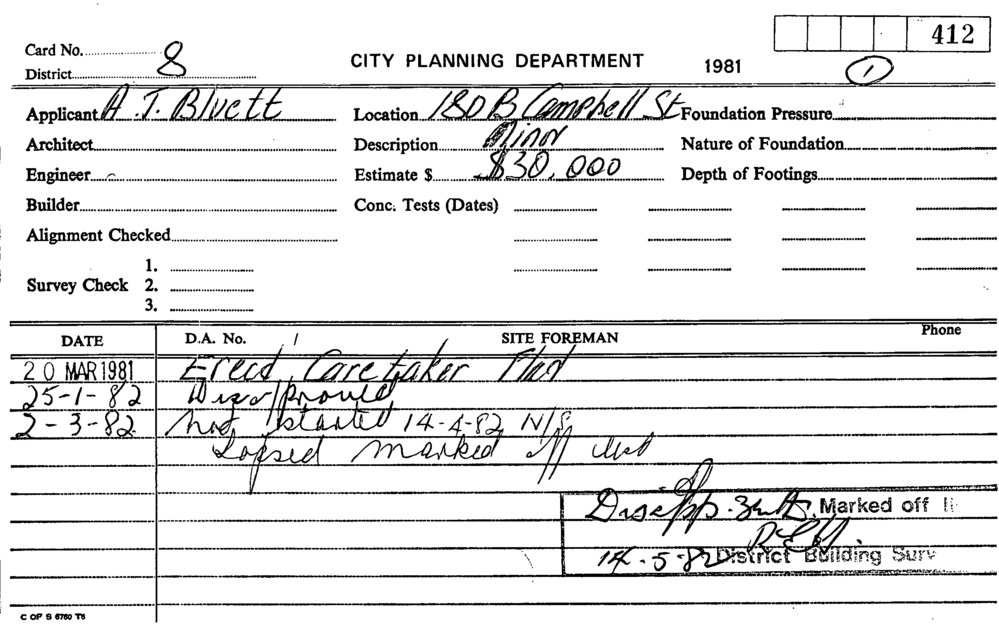 412
Card No. 8
District
CITY PLANNING DEPARTMENT 1981 1
Applicant A. J. Bluett Location 180B Campbell St Foundation Pressure
Architect Description Minor Nature of Foundation
Engineer Estimate $ $30,000 Depth of Footings
Builder Conc. Tests (Dates)
Alignment Checked
1.
Survey Check 2.
3.
DATE D.A. No. SITE FOREMAN Phone
20 MAR 1981 Erect Caretaker Flat
25-1-82 Disapproved
2-3-82 Not started 14-4-82 N/S
Lapsed marked off list
Disapp. Marked off li
14.5.82 District Building Surv
C OF S 6760 T6